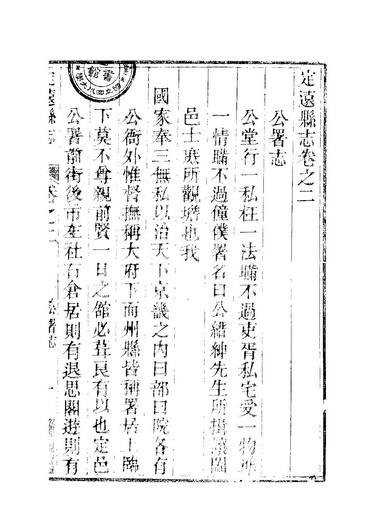 定遠縣志卷之二
公署志
公堂行一私枉一法矚不過吏胥私宅受一物
一情矚不過僮僕署名曰公縉紳先生所揖讓闔
邑士庶所觀瞻也我
國家奉三無私以治天下京畿之內曰部曰院各有
公衙外惟督撫稱大府下而州縣皆稱署居上臨
下莫不尊親前賢一日之館必葺良有以也定邑
公署前街後市左社右倉居則有退思閣遊則有
定遠縣志
卷之二
公署志
一